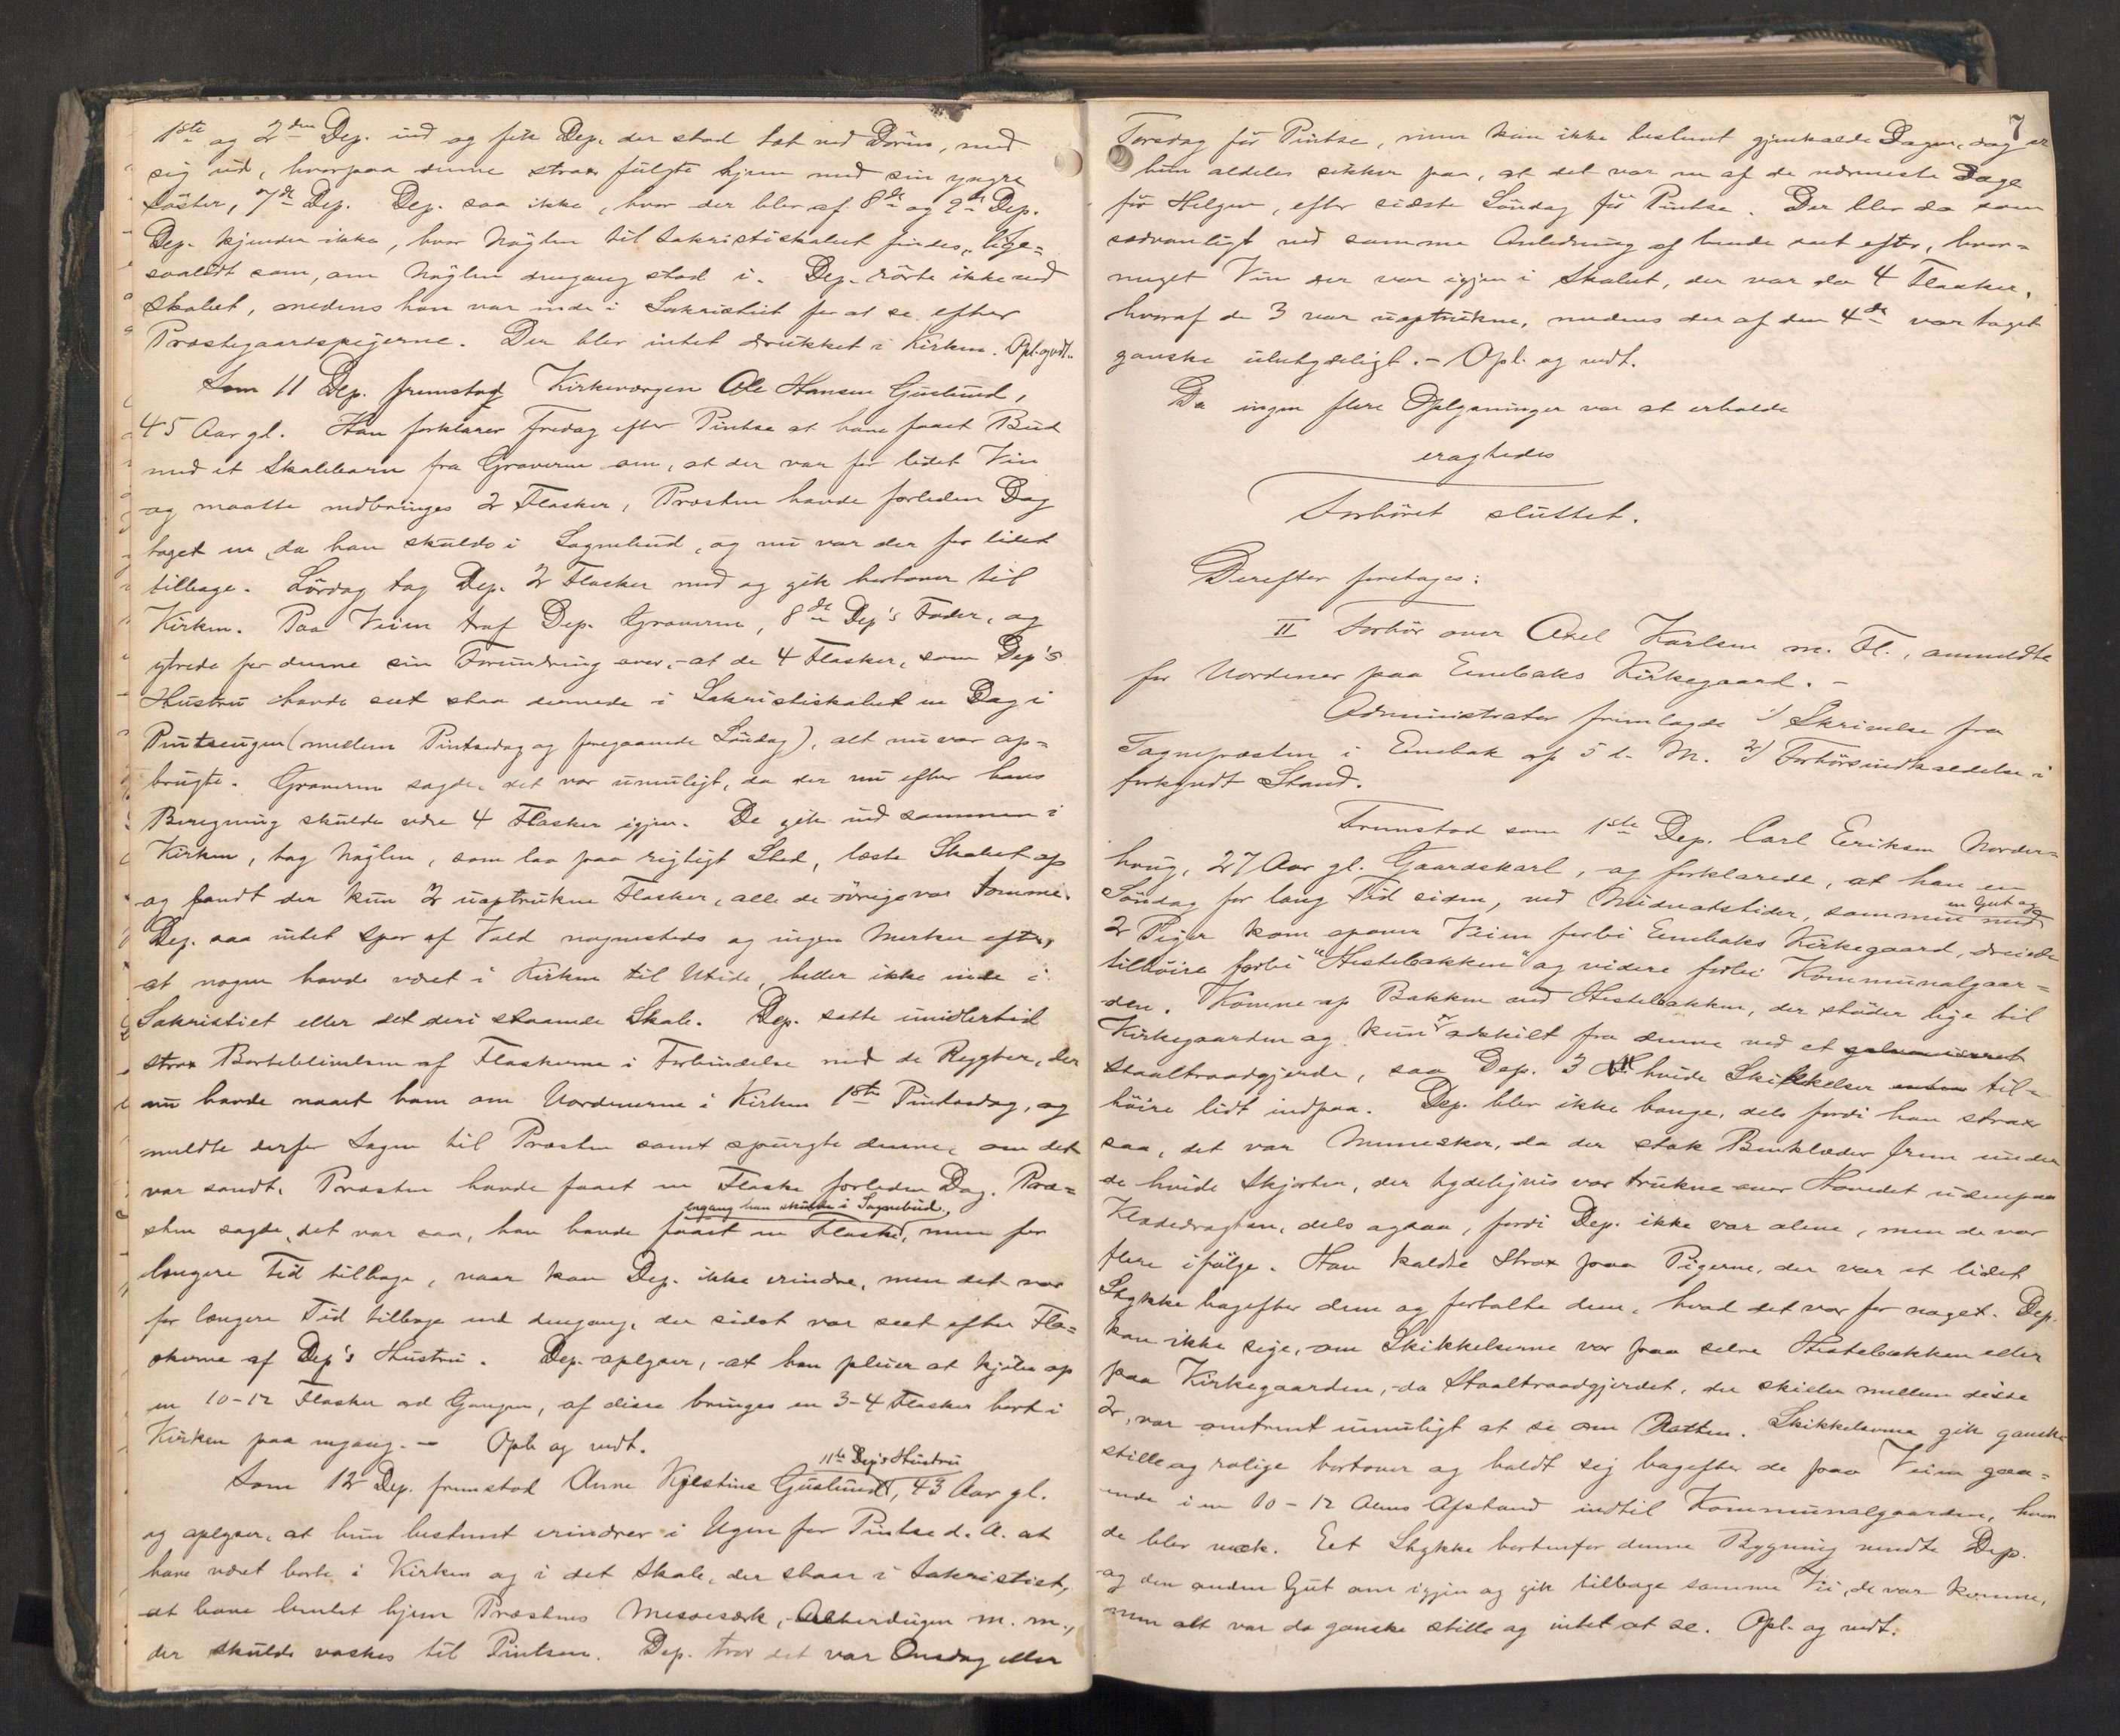 1ste og 2den Dep. ind og fik Dep. der stod tæt ved Døren, med
sig ud, hvorpaa denne strax fulgte hjem med sin yngre
Søster, 7de Dep. Dep. saa ikke, hvor der blev af 8de og 9de Dep.
Dep. kjender ikke, hvor Nøglen til Sakristiskabet findes, lige=
saalidt som, om Nøglen dengang stod i. Dep. rørte ikke ved
Skabet, medens han var inde i Sakristiet for at se efter
Præstegaardspigerne. Der blev intet drukket i Kirken. Opl. og vedt.
Som 11 Dep. fremstod Kirkeværgen Ole Hansen Guslund,
45 Aar gl. Han forklarer Fredag efter Pintse at have faaet Bud
med et Skolebarn fra Graveren om, at der var for lidet Vin
og maatte medbringes 2 Flasker, Præsten havde forleden Dag
taget en, da han skulde i Sognebud, og nu var der for lidet
tilbage. Lørdag tog Dep. 2 Flasker med og gik bortover til
Kirken. Paa Veien traf Dep. Graveren, 8de Dep's Fader, og
ytrede for denne sin Forundring over, at de 4 Flasker, som Dep's
Hustru havde seet staa dernede i Sakristiskabet en Dag i
Pintseugen (mellem Pintsedag og foregaaende Søndag), alt nu var op=
brugte. Graveren sagde, det var umuligt, da der nu efter hans
Beregning skulde være 4 Flasker igjen. De gik ind sammen i
Kirken, tog Nøglen, som laa paa rigtigt Sted, læste Skabet op
og fandt der kun 2 uoptrukne Flasker, alle de øvrige var tomme.
Dep. saa intet Spor af Vold nogensteds og ingen Merker efter,
at nogen havde været i Kirken til Utide, heller ikke inde i
Sakristiet eller det deri staaende Skab. Dep. satte imidlertid
strax Borteblivelsen af Flaskerne i Forbindelse med de Rygter, der
nu havde naaet ham om Uordenerne i Kirken 1ste Pintsedag, og
meldte derfor Sagen til Præsten samt spurgte denne, om det
var sandt, Præsten havde faaet en Flaske forleden Dag. Præ=
engang han skulde i Sognebud,
sten sagde, det var saa, han havde faaet en Flaske, men for
længere Tid tilbage, naar kan Dep. ikke erindre, men det var
for længere Tid tilbage end dengang, der sidst var seet efter Fla=
skerne af Dep's Hustru. Dep. oplyser, at han pleier at kjøbe op
en 10-12 Flasker ad Gangen, af disse bringes en 3-4 Flasker bort i
Kirken paa engang. – Opl. og vedt.
11te Dep's Hustru
Som 12 Dep. fremstod Anne Kjestine Guslund, 43 Aar gl.
og oplyser, at hun bestemt erindrer i Ugen før Pintse d. A. at
have været borte i Kirken og i det Skab, der staar i Sakristiet,
at have hentet hjem Præstens Messesærk, Alterdugen m. m.,
der skulde vaskes til Pintsen. Dep. tror det var Onsdag eller
7
Torsdag før Pintse, men kan ikke bestemt gjenkalde Dagen, dog er
hun aldeles sikker paa, at det var en af de nærmeste Dage
før Helgen, efter sidste Søndag før Pintse. Der blev da som
sædvanligt ved samme Anledning af hende seet efter, hvor=
meget Vin der var igjen i Skabet, der var da 4 Flasker,
hvoraf de 3 var uoptrukne, medens der af den 4de var taget
ganske ubetydeligt. – Opl. og vedt.
Da ingen flere Oplysninger var at erholde
eragtedes
Forhøret sluttet.
Derefter foretages:
II Forhør over Axel Karlsen m. Fl., anmeldte
for Uordener paa Enebaks Kirkegaard. –
Administrator fremlagde 1) Skrivelse fra
Sognepræsten i Enebak af 5 d. M. 2) Forhørsindkaldelse i
forkyndt Stand.
Fremstod som 1ste Dep. Carl Eriksen Norder=
haug, 27 Aar gl. Gaardskarl, og forklarede, at han en
Søndag for lang Tid siden, ved Midnatstider, sammen med
en Gut og
2 Piger kom opover Veien forbi Enebaks Kirkegaard, dreiede
tilhøire forbi "Hestebakken" og videre forbi Kommunalgaar=
den. Komne op Bakken ved Hestebakken, der støder lige til
Kirkegaarden og kun er adskilt fra denne ved et galvaniseret
Staaltraadgjerde, saa Dep. 3 hvide Skikkelser til=
høire lidt indpaa. Dep. blev ikke bange, dels fordi han strax
saa, det var Mennesker, da der stak Benklæder frem under
de hvide Skjorter, der tydeligvis var trukne over Hovedet udenpaa
Klædedragten, dels ogsaa, fordi Dep. ikke var alene, men de var
flere ifølge. Han kaldte strax paa Pigerne, der var et lidet
Stykke bagefter dem og fortalte dem, hvad det var for noget. Dep.
kan ikke sige, om Skikkelserne var paa selve Hestebakken eller
paa Kirkegaarden, da Staaltraadgjerdet, der skiller mellem disse
2, var omtrent umuligt at se om Natten. Skikkelserne gik ganske
stille og rolige bortover og holdt sig bagefter de paa Veien gaa=
ende i en 10-12 Alens Afstand indtil Kommunalgaarden, hvor
de blev væk. Eet Stykke bortenfor denne Bygning vendte Dep.
og den anden Gut om igjen og gik tilbage samme Vei, de var komne,
men alt var da ganske stille og intet at se. Opl. og vedt.